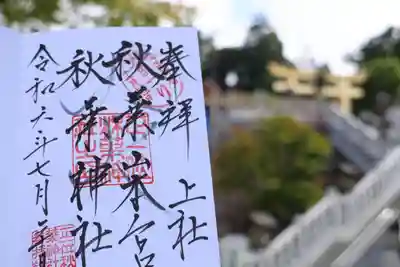 奉拝
上社
秋葉山本宮
秋葉神社
令和六年七月